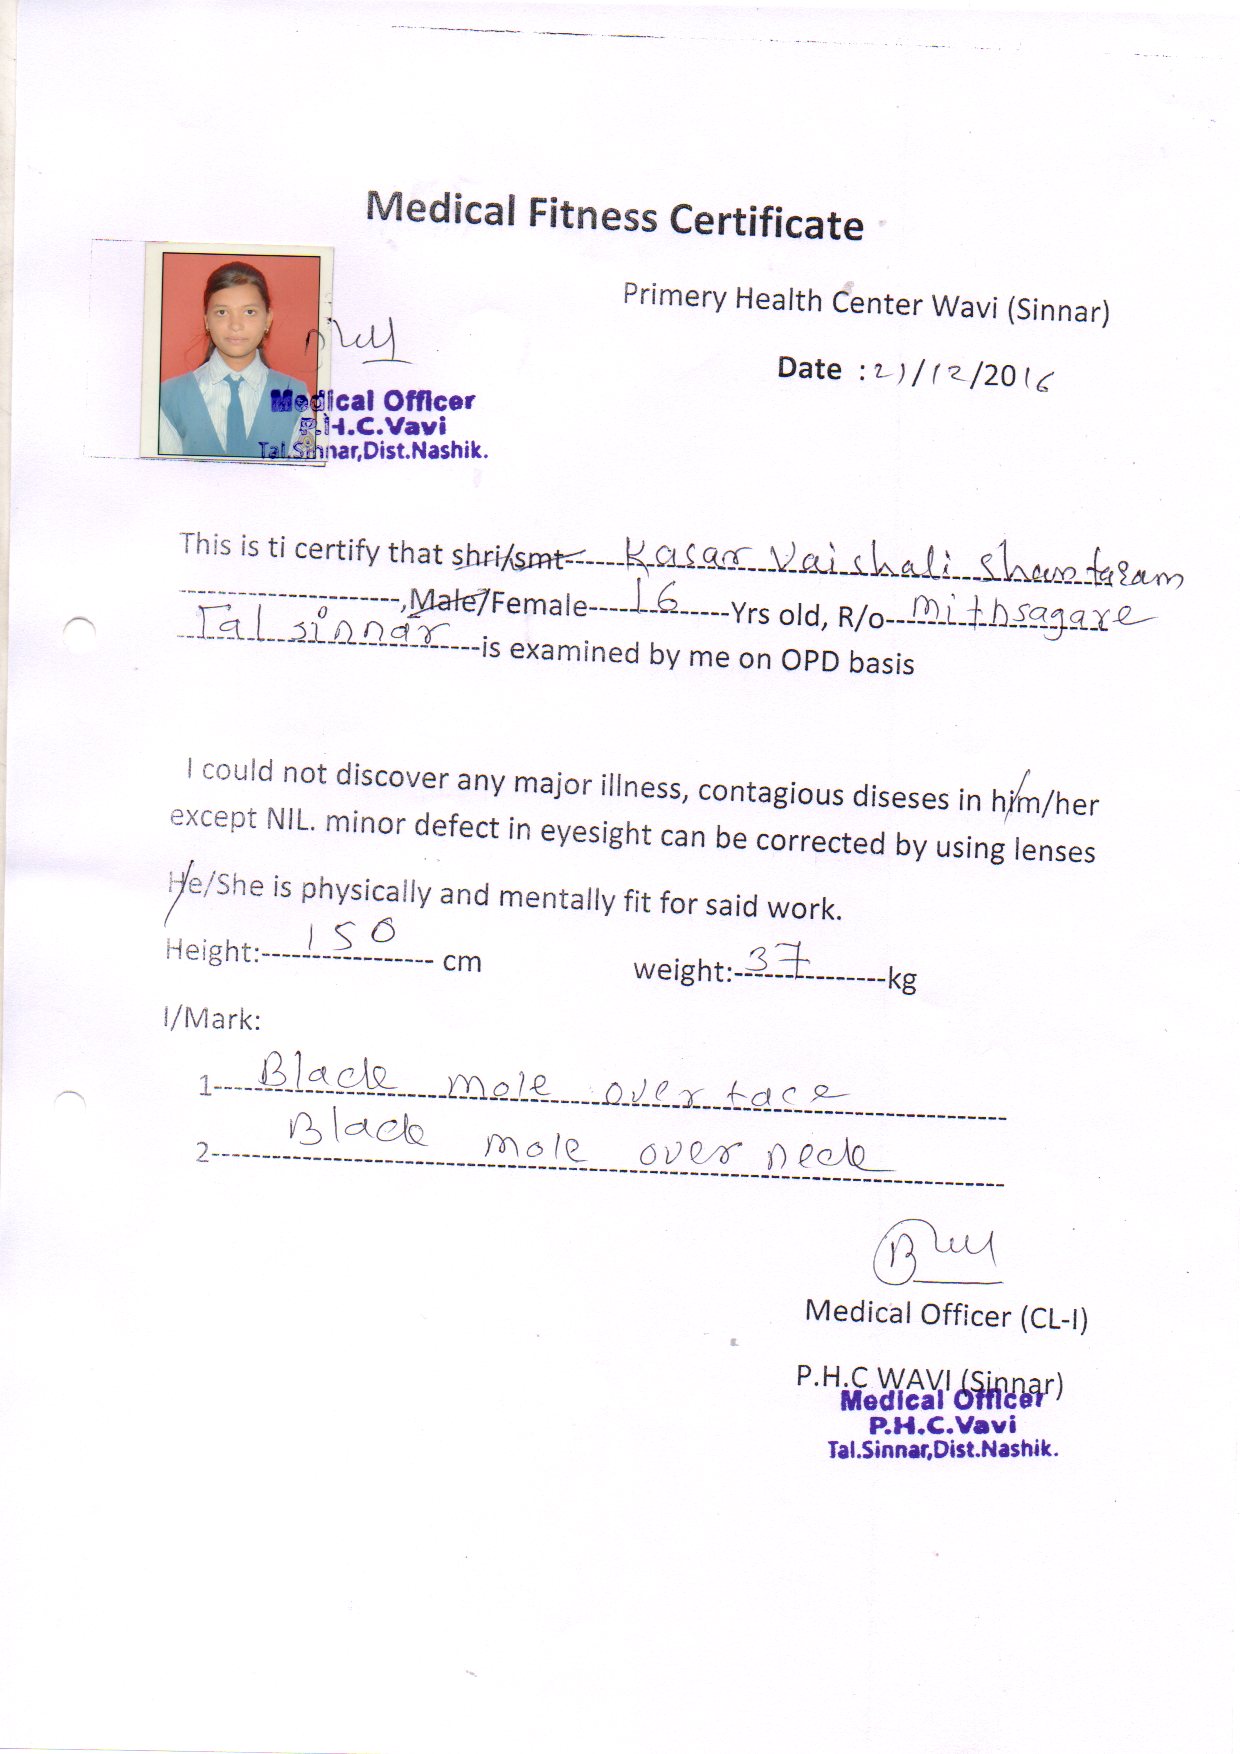 Medical Fitness Certificate
Primery Health Center Wavi (Sinnar)
Date : 21/12/2016
Medical Officer
P.H.C.Vavi
Tal.Sinnar,Dist.Nashik.
This is ti certify that shri/smt------Kasar Vaishali Shantaram
----------------------,Male/Female-----16------Yrs old, R/o---Mithsagare
Tal sinnar---is examined by me on OPD basis
I could not discover any major illness, contagious diseses in him/her
except NIL. minor defect in eyesight can be corrected by using lenses
He/She is physically and mentally fit for said work.
Height:-----150----- cm weight:--37--------kg
I/Mark:
1----Black mole over face
2----Black mole over neck
Medical Officer (CL-I)
P.H.C WAVI (Sinnar)
Medical Officer
P.H.C.Vavi
Tal.Sinnar,Dist.Nashik.